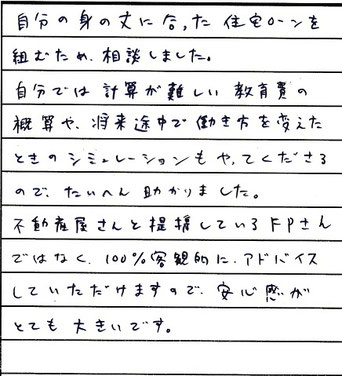 自分の身の丈に合った住宅ローンを
組むため、相談しました。
自分では計算が難しい教育費の
概算や、将来途中で働き方を変えた
ときのシミュレーションもやってくださる
ので、たいへん助かりました。
不動産屋さんと提携しているFPさん
ではなく、100%客観的に、アドバイス
していただけますので、安心感が
とても大きいです。